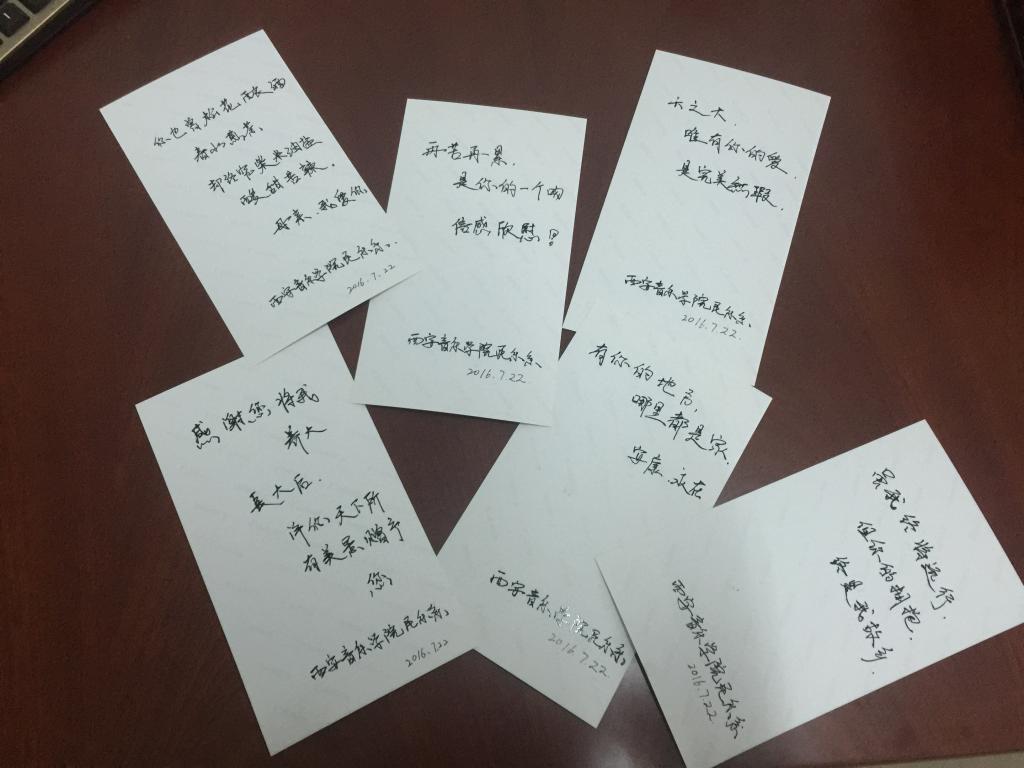 你也曾松花酿酒
春水煎茶,
却许你柴米油盐
酸甜苦辣.
母亲、我爱你
西安音乐学院民乐系.
2016.7.22
再苦再累,
是你的一个吻
倍感欣慰!
西安音乐学院民乐系
2016.7.22
六之大,
唯有你的爱,
是完美无瑕.
西安音乐学院民乐系.
2016.7.22.
感谢您,将我
养大
长大后.
许你天下所
有美景,赠予
您
西安音乐学院民乐系,
2016.7.22
有你的地方,
哪里都是家.
安康.永在
西安音乐学院民乐系
2016.7.22
虽我终将远行.
但你的拥抱.
终是我故乡.
西安音乐学院民乐系
2016.7.22